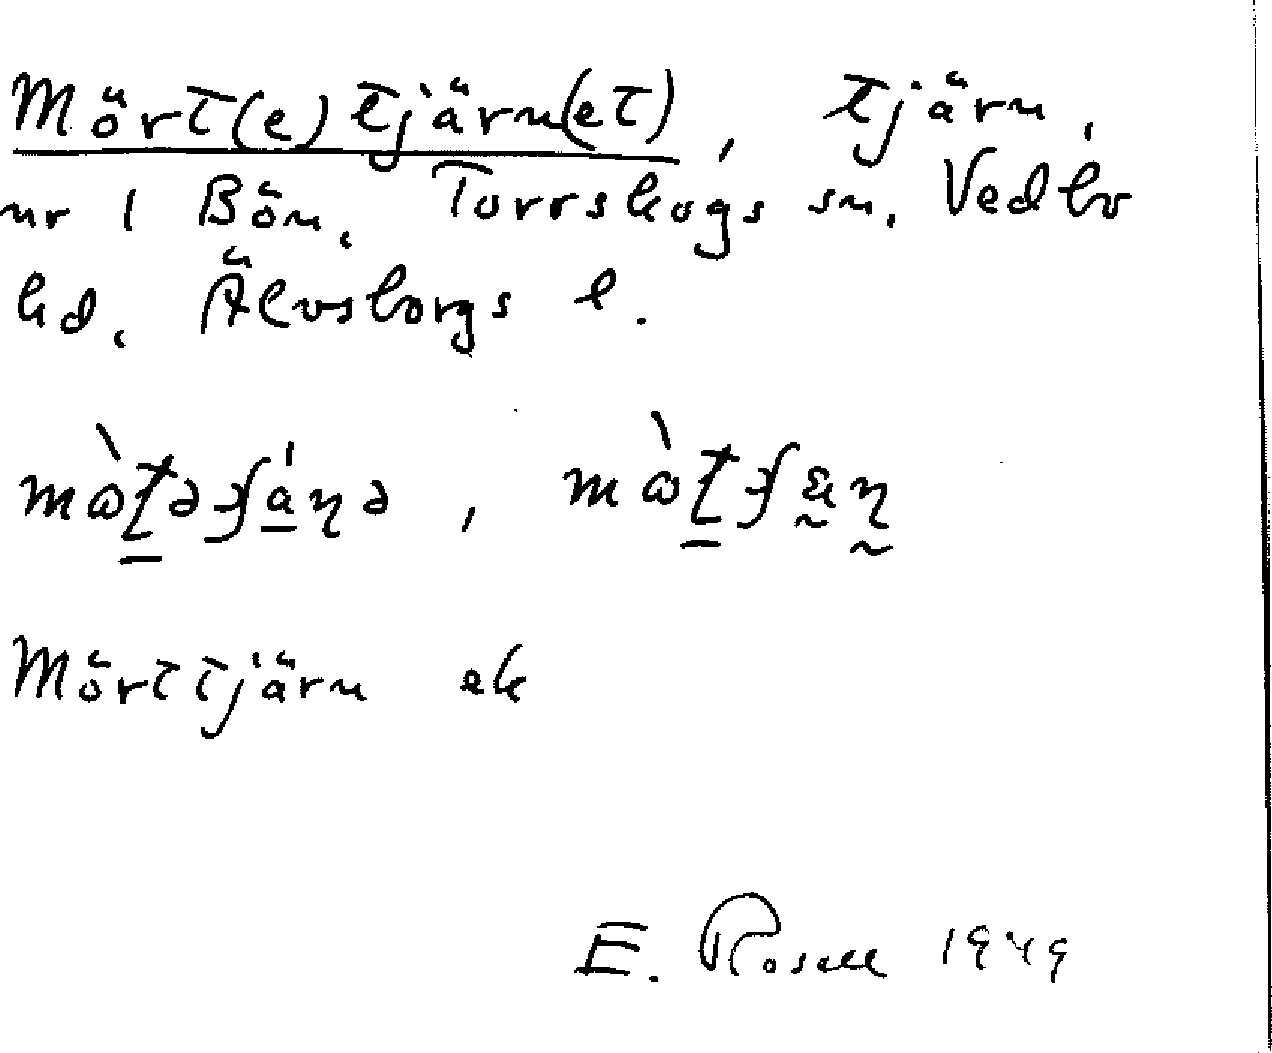 Mört(e)tjärn(et), tjärn,
nr 1 Bön, Torrskogs sn, Vedbo
hd, Älvsborgs l.
Mörttjärn ek
E. Rosell 1949